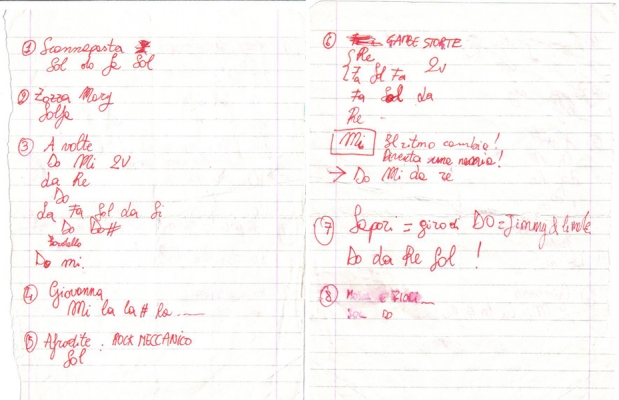 ① Scannapasta
Sol do Fa Sol
② Zozza Mary
Solfa
③ A volte
Do Mi 2v
da Re
Do
La Fa Sol da Si
Do Do#
Bordello
Do mi.
④ Giovanna
Mi la la# la
⑤ Afrodite : ROCK MECCANICO
Sol
⑥ GAMBE STORTE
Re
Fa Sol Fa 2v
Fa Sol da
Re -
Mi Il ritmo cambia!
Diventa una !
→ Do Mi da ré
⑦ Sapori = giro di DO = Jimmy &
Do da Re Sol !
⑧ E FIORI
Do